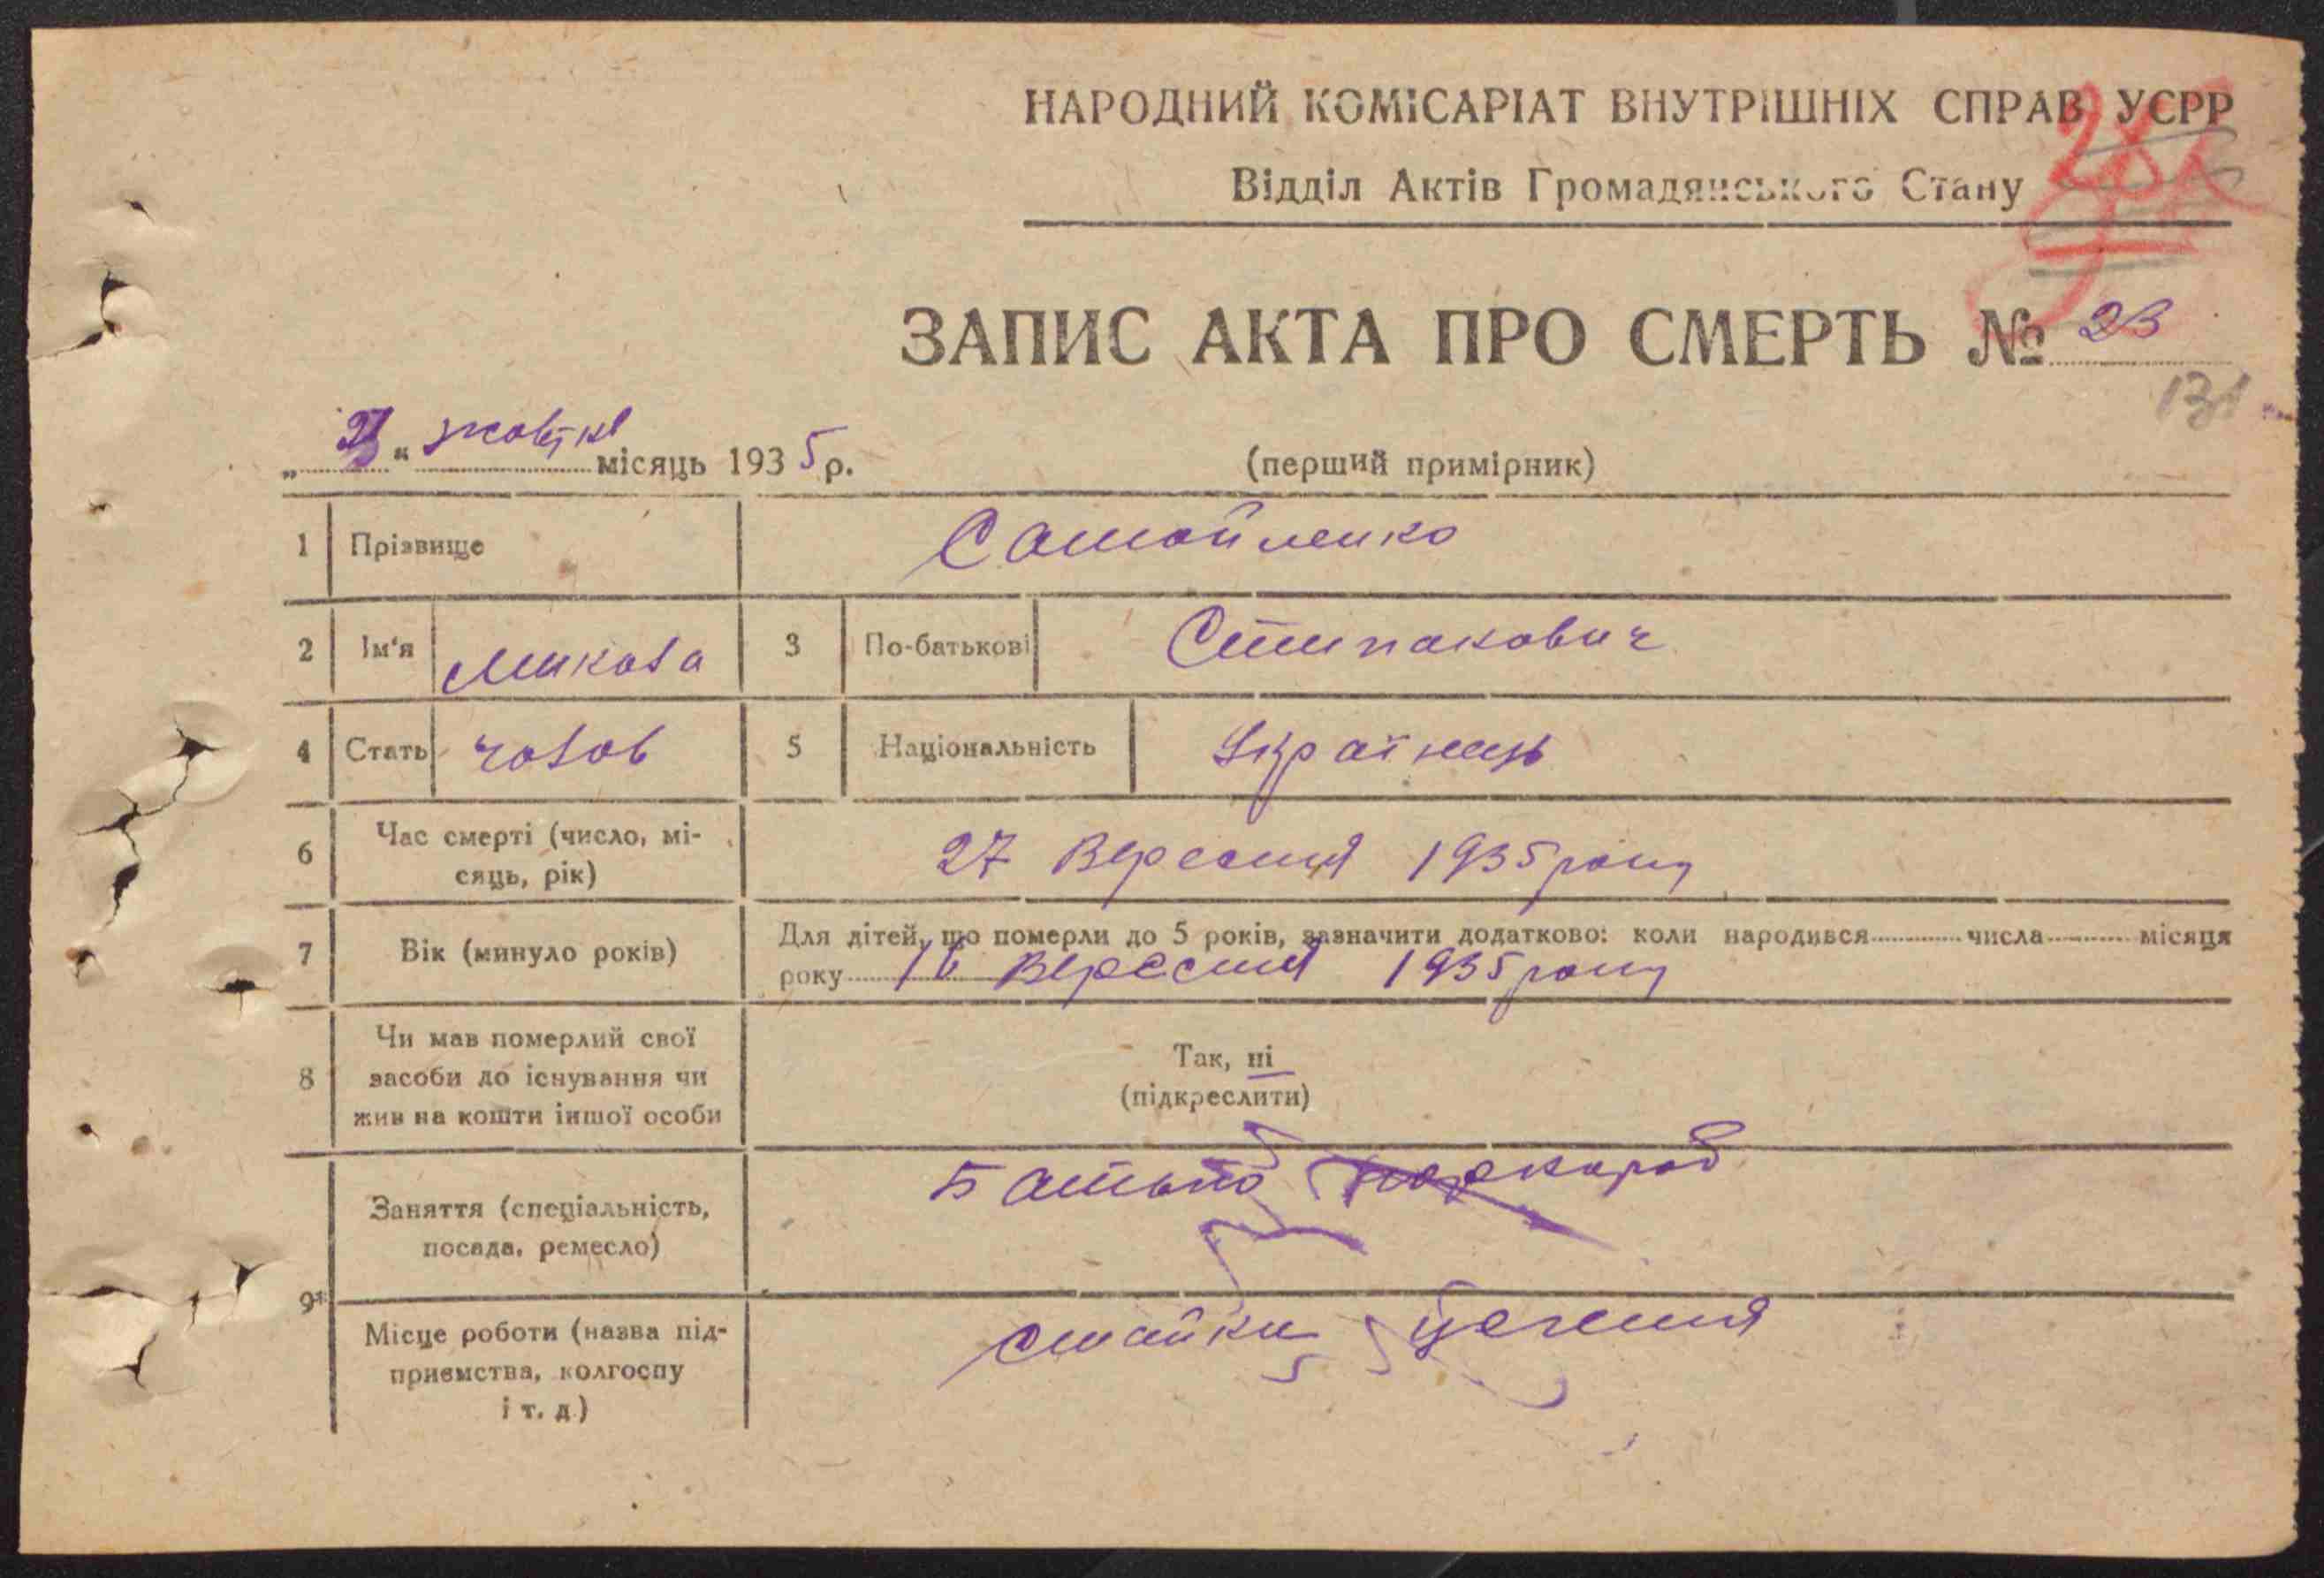 НАРОДНИЙ КОМІСАРІАТ ВНУТРІШНІХ СПРАВ УСРР
Відділ Актів Громадянського Стану
ЗАПИС АКТА ПРО СМЕРТЬ № 23
131
„ “ жовтня місяць 1935 р.
(перший примірник)
1 Прізвище Самойленко
2 Ім'я Микола 3 По-батькові Степанович
4 Стать чолов 5 Національність Українець
6 Час смерті (число, мі-
сяць, рік) 27 Вересня 1935 року
7 Вік (минуло років) Для дітей, що померли до 5 років, зазначити додатково: коли народився числа місяця
року 16 Вересня 1935 року
8 Чи мав померлий свої
засоби до існування чи
жив на кошти іншої особи
Так, ні
(підкреслити)
9*
Заняття (спеціальність,
посада, ремесло) Батько
Місце роботи (назва під-
приємства, колгоспу
і т. д.)